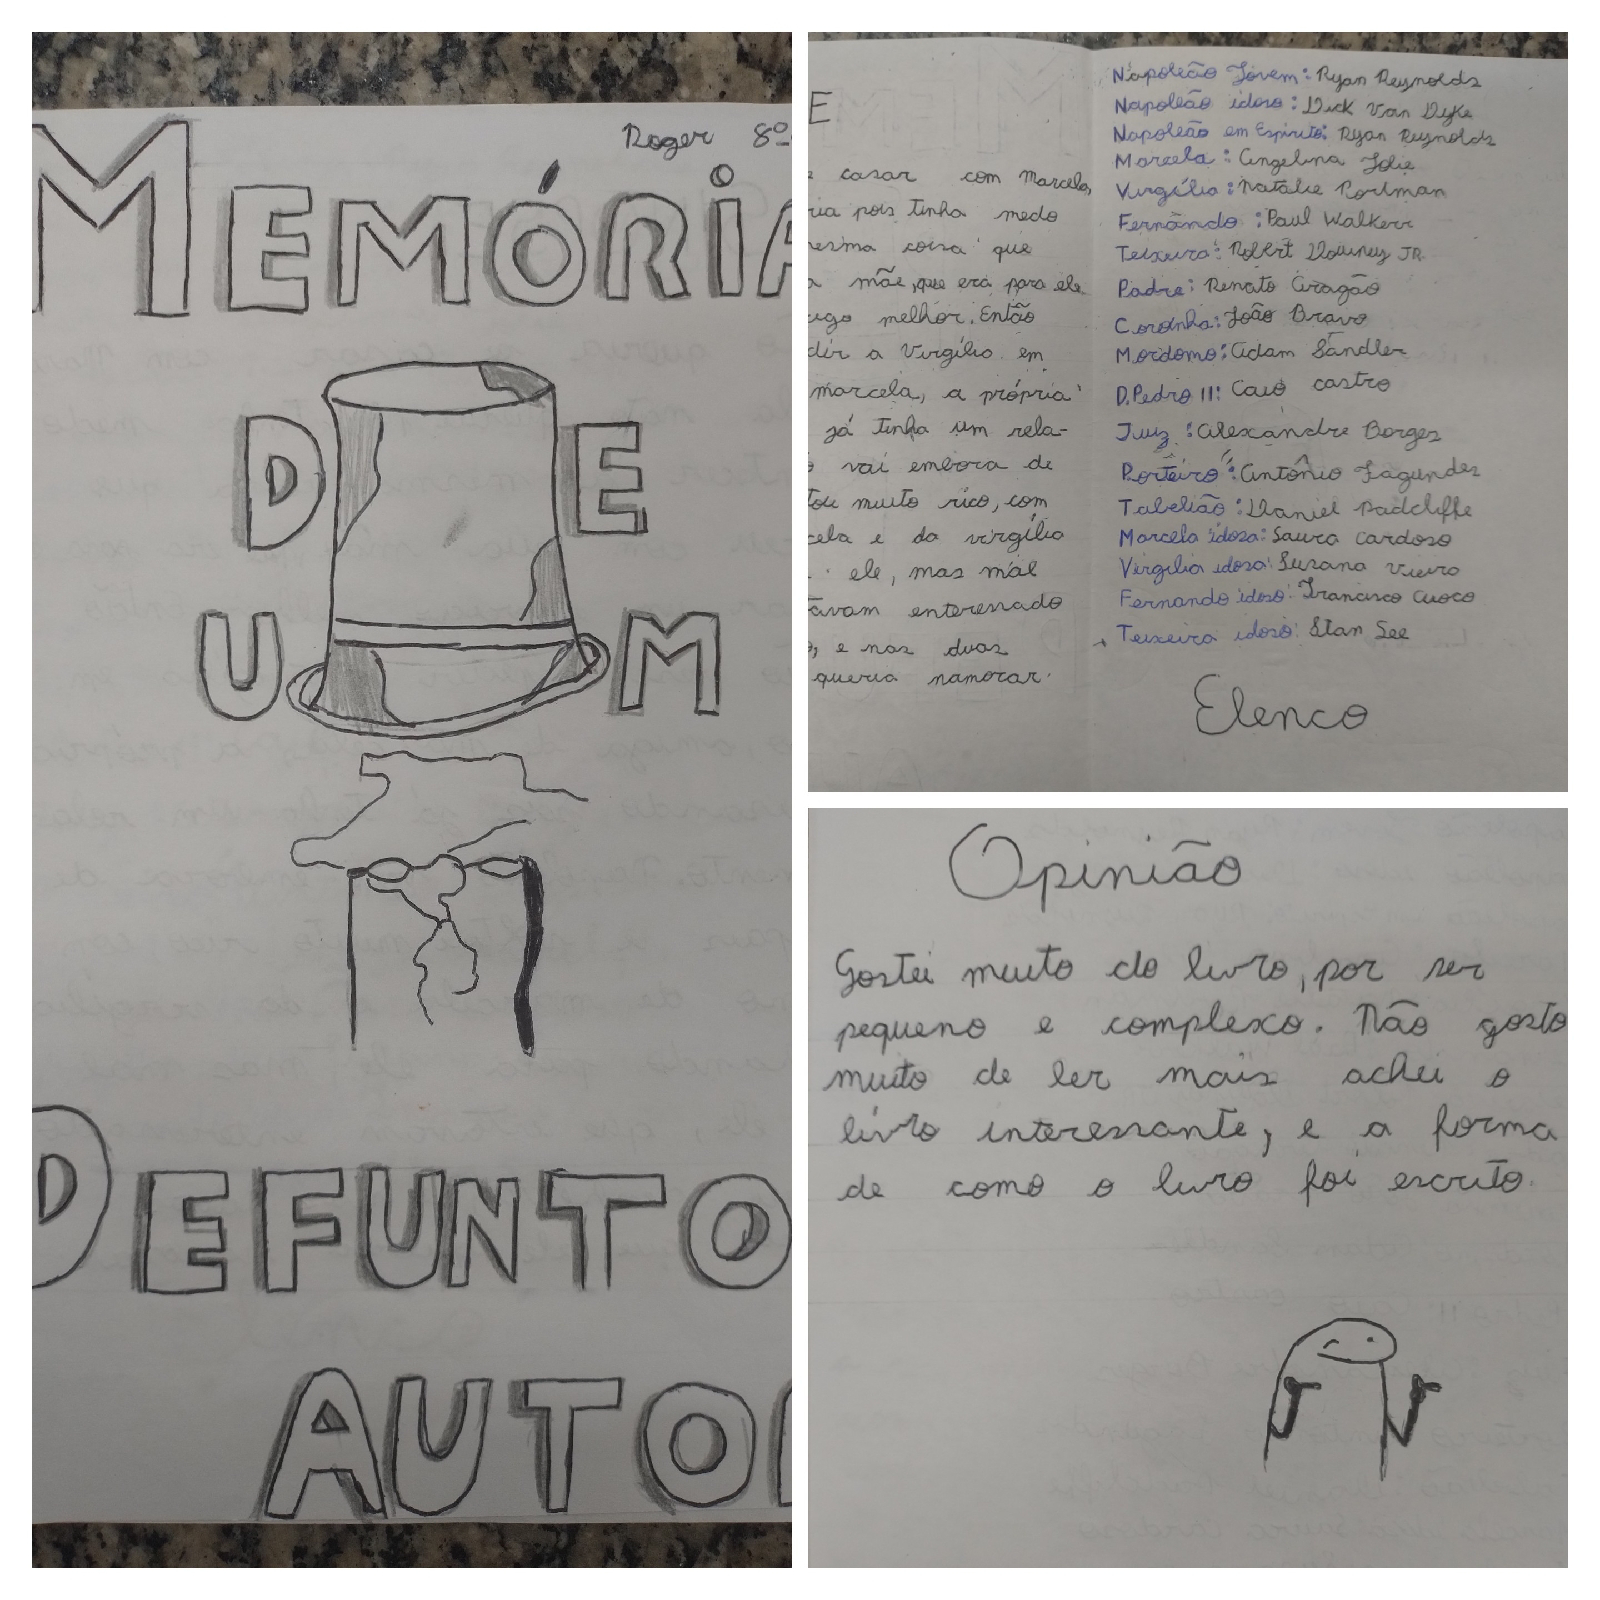 Roger 8º
MEMÓRIA
DE
UM
DEFUNTO
AUTO
E
casar com Marcela,
ria pois tinha medo
esma coisa que
a mãe, que era para ele
igo melhor. Então
dir a Virgílio em
marcela, a própria
já tinha um rela-
o vai embora de
tou muito rico, com
cela e da virgílio
ele, mas mal
tavam enteressado
o, e nas duas
queria namorar.
Napoleão Jovem: Ryan Reynolds
Napoleão idoso: Dick Van Dyke
Napoleão em Espírito: Ryan Reynolds
Marcela: Angelina Jolie
Virgília: Natálie Portman
Fernando: Paul Walkerr
Teixeira: Robert Downey JR.
Padre: Renato Aragão
Coroinha: João Bravo
Mordomo: Adam Sandler
D.Pedro II: Caio castro
Juiz: Alexandre Borges
Porteiro: Antônio Fagundes
Tabelião: Daniel Radcliffe
Marcela idosa: Laura Cardoso
Virgília idosa: Susana Vieira
Fernando idoso: Francisco Cuoco
Teixeira idoso: Stan Lee
Elenco
Opinião
Gostei muito do livro, por ser
pequeno e complexo. Não gosto
muito de ler mais achei o
livro interessante, e a forma
de como o livro foi escrito.